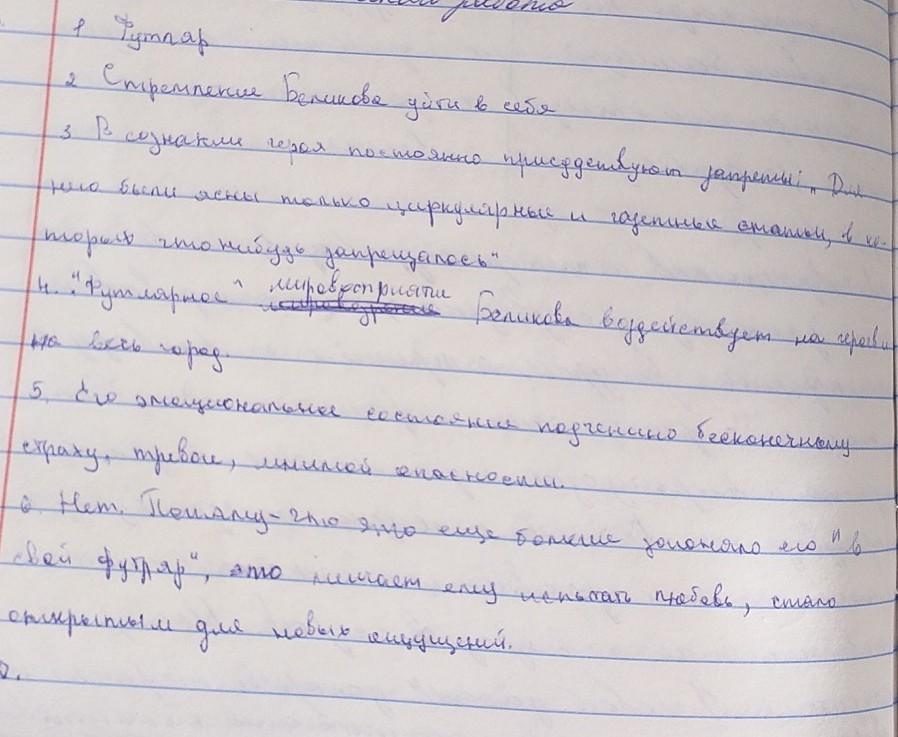 работа
1 Футляр
2 Стремление Беликова уйти в себя
3 В сознании героя постоянно присудствуют запреты: „Для
него были ясны только циркулярные и газетные статьи, в ко-
торых что нибудь запрещалось"
4. "Футлярное" мировосприяти Беликова воздействует на героя и
на весь город.
5. Его эмоциональное состояние подченино бесконечному
страху, тревоге, мнимой опасности.
6 Нет. Потому-что это еще больше его "в
свой футляр", это мешает ему испытать любовь, стать
открытым для новых ощущений.
7.